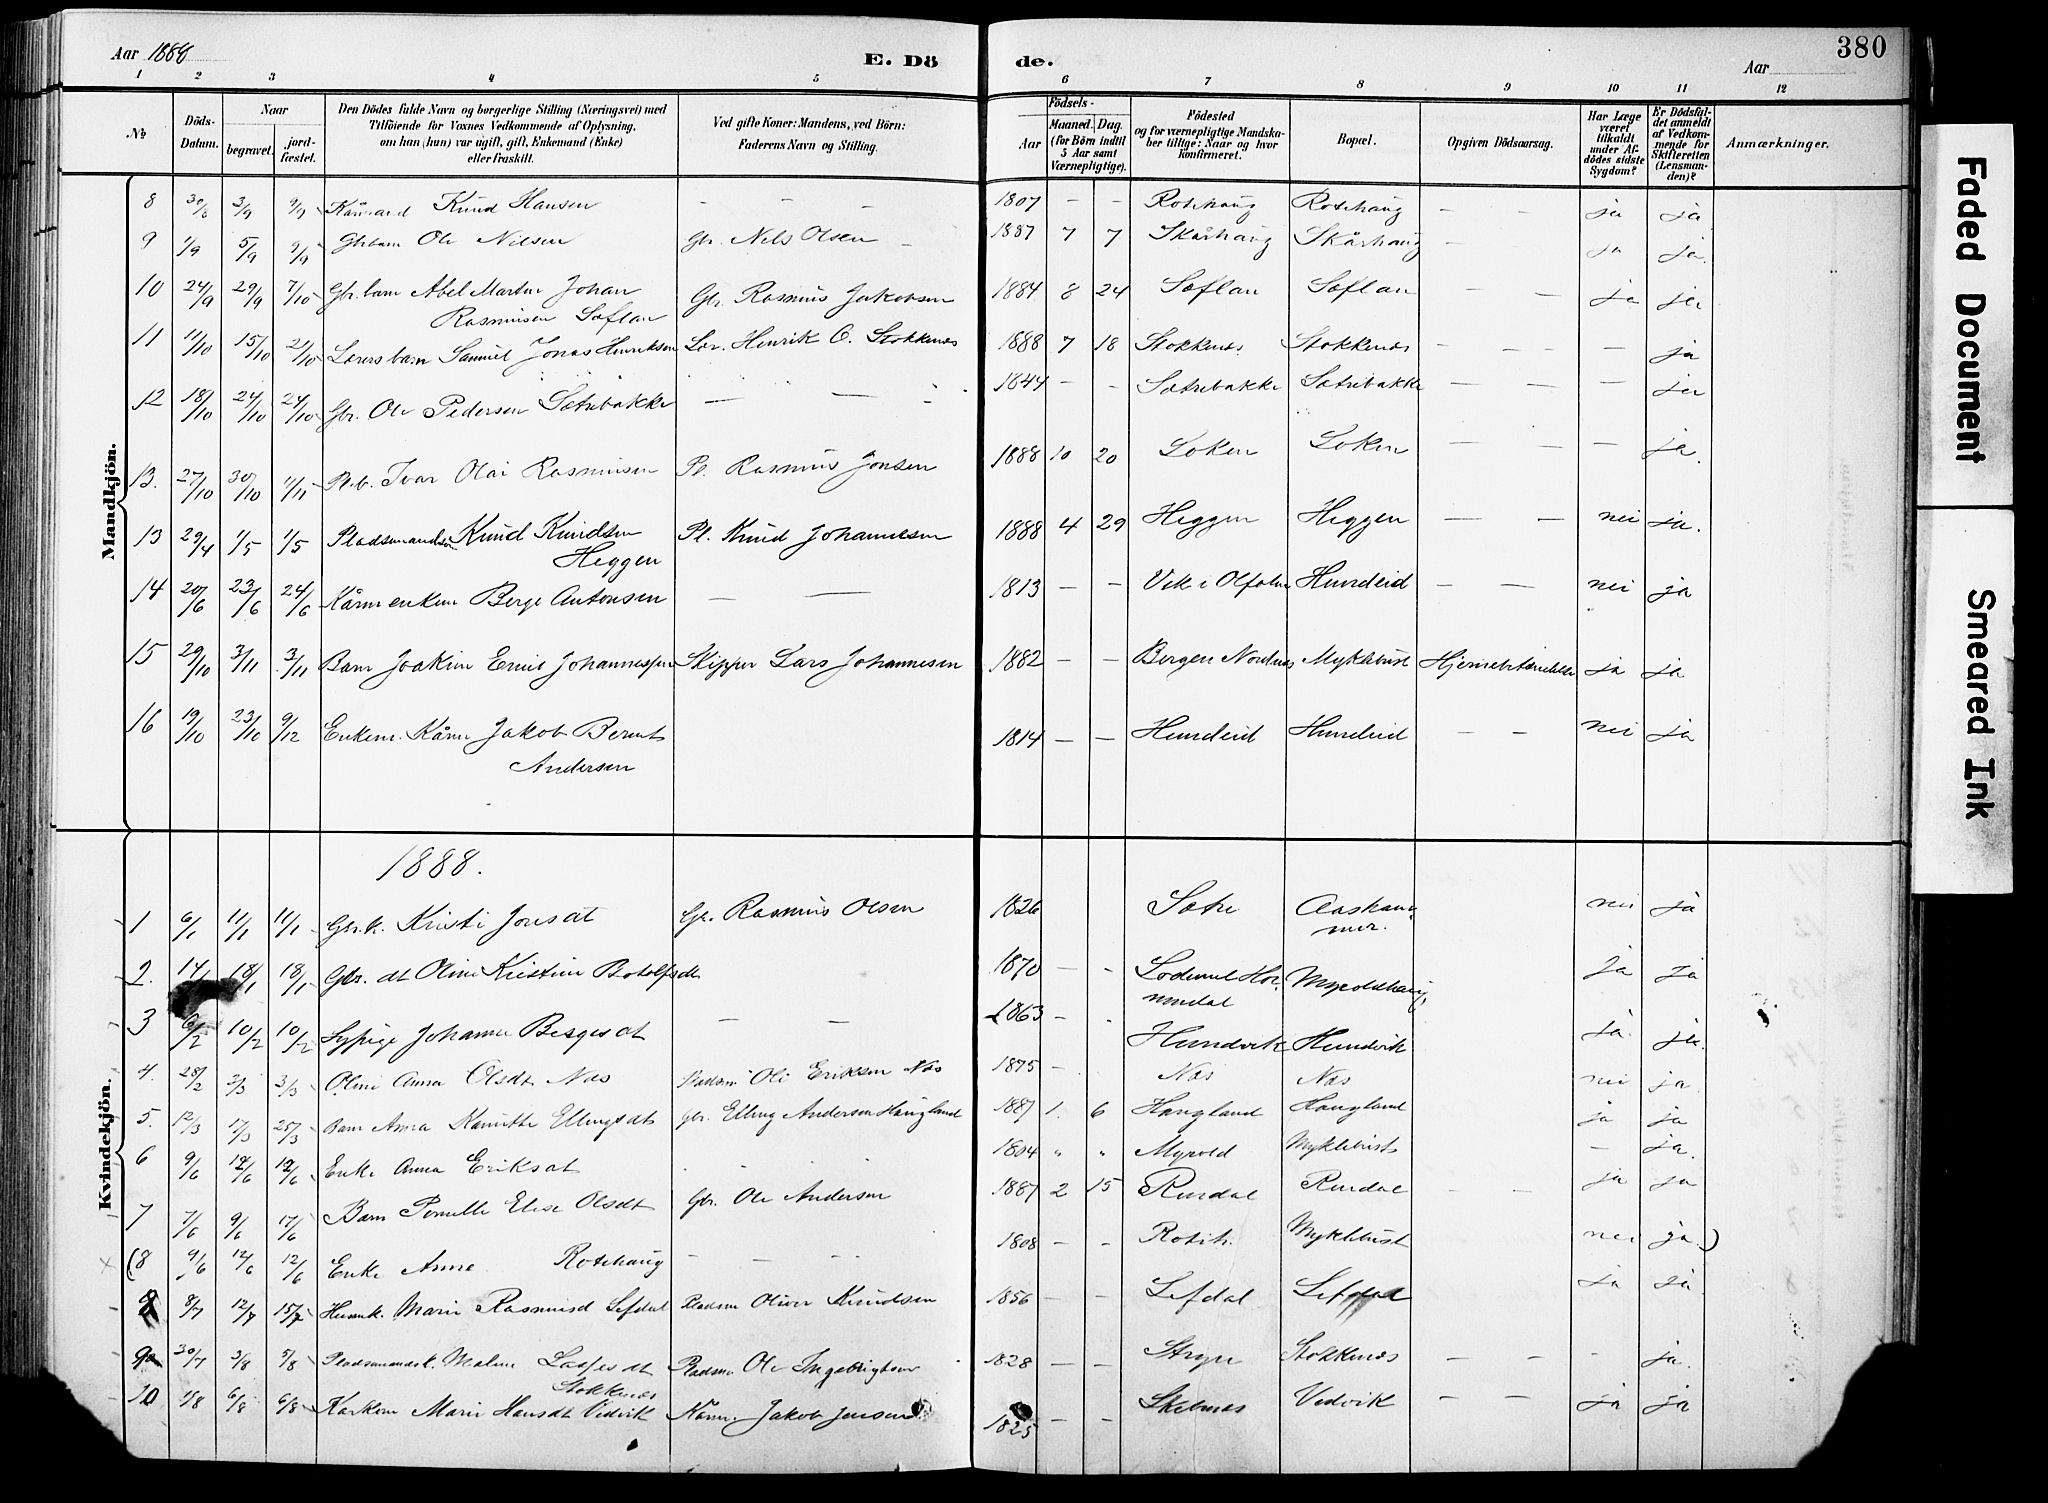 Aar 1888
E. Dö
de.
Aar
380
1 2 3 4 5 6 7 8 9 10 11 12
No
Döds-Datum.
Naar
begravet.
jordfæstet.
Den Dödes fulde Navn og borgerlige Stilling (Næringsvei) med
Tilföiende for Voxnes Vedkommende af Oplysning,
om han (hun) var ugift, gift, Enkemand (Enke)
eller fraskilt.
Ved gifte Koner: Mandens, ved Börn:
Faderens Navn og Stilling.
Födsels-
Aar
Maaned. Dag.
(for Börn indtil
5 Aar samt
Værnepligtige).
Födested
og for værnepligtige Mandska-
ber tillige: Naar og hvor
konfirmeret.
Bopæl.
Opgiven Dödsaarsag.
Har Læge
været
tilkaldt
under Af-
dödes sidste
Sygdom?
Er Dödsfal-
det anmeldt
af Vedkom-
mende for
Skifteretten
(Lensman-
den)?
Anmærkninger.
Mandkjön.
8 30/8 3/9 9/9 Kårmand Knud Hansen - - - 1807 - - Rotehaug Rotehaug - - ja ja
9 1/9 5/9 9/9 Gbr.barn Ole Nilsen Gbr. Nels Olsen - 1887 7 7 Skårhaug Skårhaug - ja ja.
10 24/9 29/9 7/10 Gbr.barn Abel Martin Johan
Rasmusen Søflan Gbr. Rasmus Jakobsen 1884 8 24 Søflan Søflan - - ja ja
11 11/10 15/10 21/10 Lærers barn Samuel Jonas Henriksen Lær. Henrik O. Stokkenes 1888 7 18 Stokkenes Stokkenes - - - ja
12 18/10 24/10 24/10 Gbr. Ole Pedersen Sætrebakke - - - 1844 - - Sætrebakke Sætrebakke - - - ja
13. 27/10 30/10 11/11 Pl.b. Ivar Olai Rasmusen Pl. Rasmus Jonsen 1888 10 20 Løken Løken - - - ja.
13 29/4 1/5 1/5 Pladsmandsøn Knud Knudsen
Heggen Pl. Knud Johannesen 1888 4 29 Heggen Heggen - - nei ja.
14 20/6 23/6 24/6 Kårmenkem Berge Antonsen - - 1813 - - Vik i Hundeid - - nei ja
15 29/10 3/11 3/11 Barn Joakim Emil Johannessen Skipper Lars Johannesen 1882 - - Bergen Nordnes Myklebust Hjernebetændelse ja ja
16 19/10 23/10 9/12 Enkem. Kårm Jakob Bernt
Andersen 1814 - - Hundeid Hundeid - - nei ja
1888.
Kvindekjön.
1 6/1 11/1 11/1 Gbr.k. Kristi Jonsdt Gbr. Rasmus Olsen 1826 Sætre Aaskam-
mer. nei ja
2. 14/1 18/1 18/1 Gbr. dt Oline Kristine Botolfsdt 1870 - - Lødemel Hor-
nindal Myroldhaug ja ja
3 6/2 10/2 10/2 Sypige Johanne Bergesdt - - 1863 - - Hundvik Hundvik ja ja.
4. 28/2 3/3 3/3 Oline Anna Olsdt Nos Pladsm Ole Eriksen Nos 1875 - Nos Nos nei ja
5. 12/3 17/3 25/3 Barn Anna Kanutte Ellingsdt Gbr. Elling Andersen Haugland 1887 1. 6 Haugland Haugland ja ja
6 9/6 12/6 12/6 Enke Anna Eriksdt 1804 " " Myrold Myklebust - ja.
7 7/6 9/6 17/6 Barn Pernille Elise Olsdt Gbr. Ole Andersen 1887 2 15 Rusdal Rusdal - - ja ja
(8 9/6 12/6 12/6 Enke Anne Rotehaug - - - 1808 - - Roteh. Myklebust nei ja.)
8/7 12/7 15/7 Husmk. Marie Rasmusd Lefdal Pladsm Oliver Knudsen 1856 - - Lefdal Lefdal ja ja
9 30/7 3/8 5/8 Pladsmandsk. Malene Lassesdt
Stokkenes Pladsm Ole Ingebrigtsen 1828 - - Stryn Stokkenes - - - ja.
10 1/8 6/8 6/8 Karkone Marie Hansdt Vedvik Kårm. Jakob Jensen 1825 - - Skibenes Vedvik - - ja ja
Faded Document
Smeared Ink